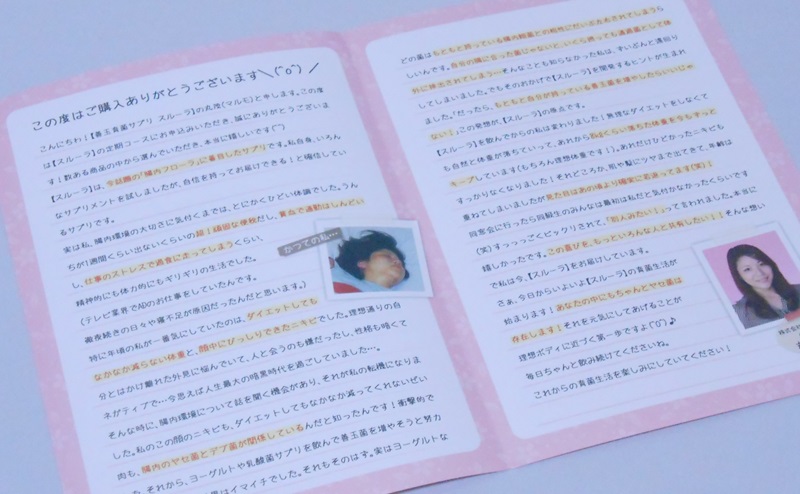 この度はご購入ありがとうございます＼(^o^)／
こんにちわ！【善玉育菌サプリ スルーラ】の丸茂(マルモ)と申します。この度
は【スルーラ】の定期コースにお申込みいただき、誠にありがとうございま
す！数ある商品の中から選んでいただき、本当に嬉しいです(^^)
【スルーラ】は、今話題の「腸内フローラ」に着目したサプリです。私自身、いろん
なサプリメントを試しましたが、自信を持ってお届けできる！と確信してい
るサプリです。
実は私、腸内環境の大切さに気付くまでは、とにかくひどい体調でした。うん
ちが1週間くらい出ないくらいの超！頑固な便秘だし、貧血で通勤はしんどい
し、仕事のストレスで過食に走ってしまうくらい、
精神的にも体力的にもギリギリの生活でした。
(テレビ業界でADのお仕事をしていたんです。
徹夜続きの日々や寝不足が原因だったんだと思います。)
特に年頃の私が一番気にしていたのは、ダイエットしても
なかなか減らない体重と、顔中にびっしりできたニキビでした。理想通りの自
分とはかけ離れた外見に悩んでいて、人と会うのも嫌だったし、性格も暗くて
ネガティブで…今思えば人生最大の暗黒時代を過ごしていました…。
そんな時に、腸内環境について話を聞く機会があり、それが私の転機になりま
した。私のこの顔のニキビも、ダイエットしてもなかなか減ってくれないぜい
肉も、腸内のヤセ菌とデブ菌が関係しているんだと知ったんです！衝撃的で
した。それから、ヨーグルトや乳酸菌サプリを飲んで善玉菌を増やそうと努力
果はイマイチでした。それもそのはず。実はヨーグルトな
かつての私…
どの菌はもともと持っている腸内細菌との相性にだいぶ左右されてしまうら
しいんです。自分の腸に合った菌じゃないと、いくら摂っても通過菌として体
外に排出されてしまう…そんなことも知らなかった私は、ずいぶんと遠回り
してしまいました。でもそのおかげで【スルーラ】を開発するヒントが生まれ
ました。「だったら、もともと自分が持っている善玉菌を増やしたらいいじゃ
ない！」この発想が、【スルーラ】の原点です。
【スルーラ】を飲んでからの私は変わりました！無理なダイエットをしなくて
も自然と体重が落ちていって、あれから
キープしています(もちろん理想体重です！)。あれだけひどかったニキビも
すっかりなくなりました！それどころか、肌や髪にツヤまで出てきて、年齢は
重ねてしまいましたが見た目はあの頃より確実に若返ってます(笑)！
同窓会に行ったら同級生のみんなは最初は私だと気付かなかったくらいです
(笑)すっっっごくビックリされて、「別人みたい！」って言われました。本当に
嬉しかったです。この喜びを、もっといろんな人と共有したい！！そんな想い
で私は今、【スルーラ】をお届けしています。
さぁ、今日からいよいよ【スルーラ】の育菌生活が
始まります！あなたの中にもちゃんとヤセ菌は
存在します！それを元気にしてあげることが
理想ボディに近づく第一歩ですよ(^o^)♪
毎日ちゃんと飲み続けてくださいね。
これからの育菌生活を楽しみにしていてください！
株式会社